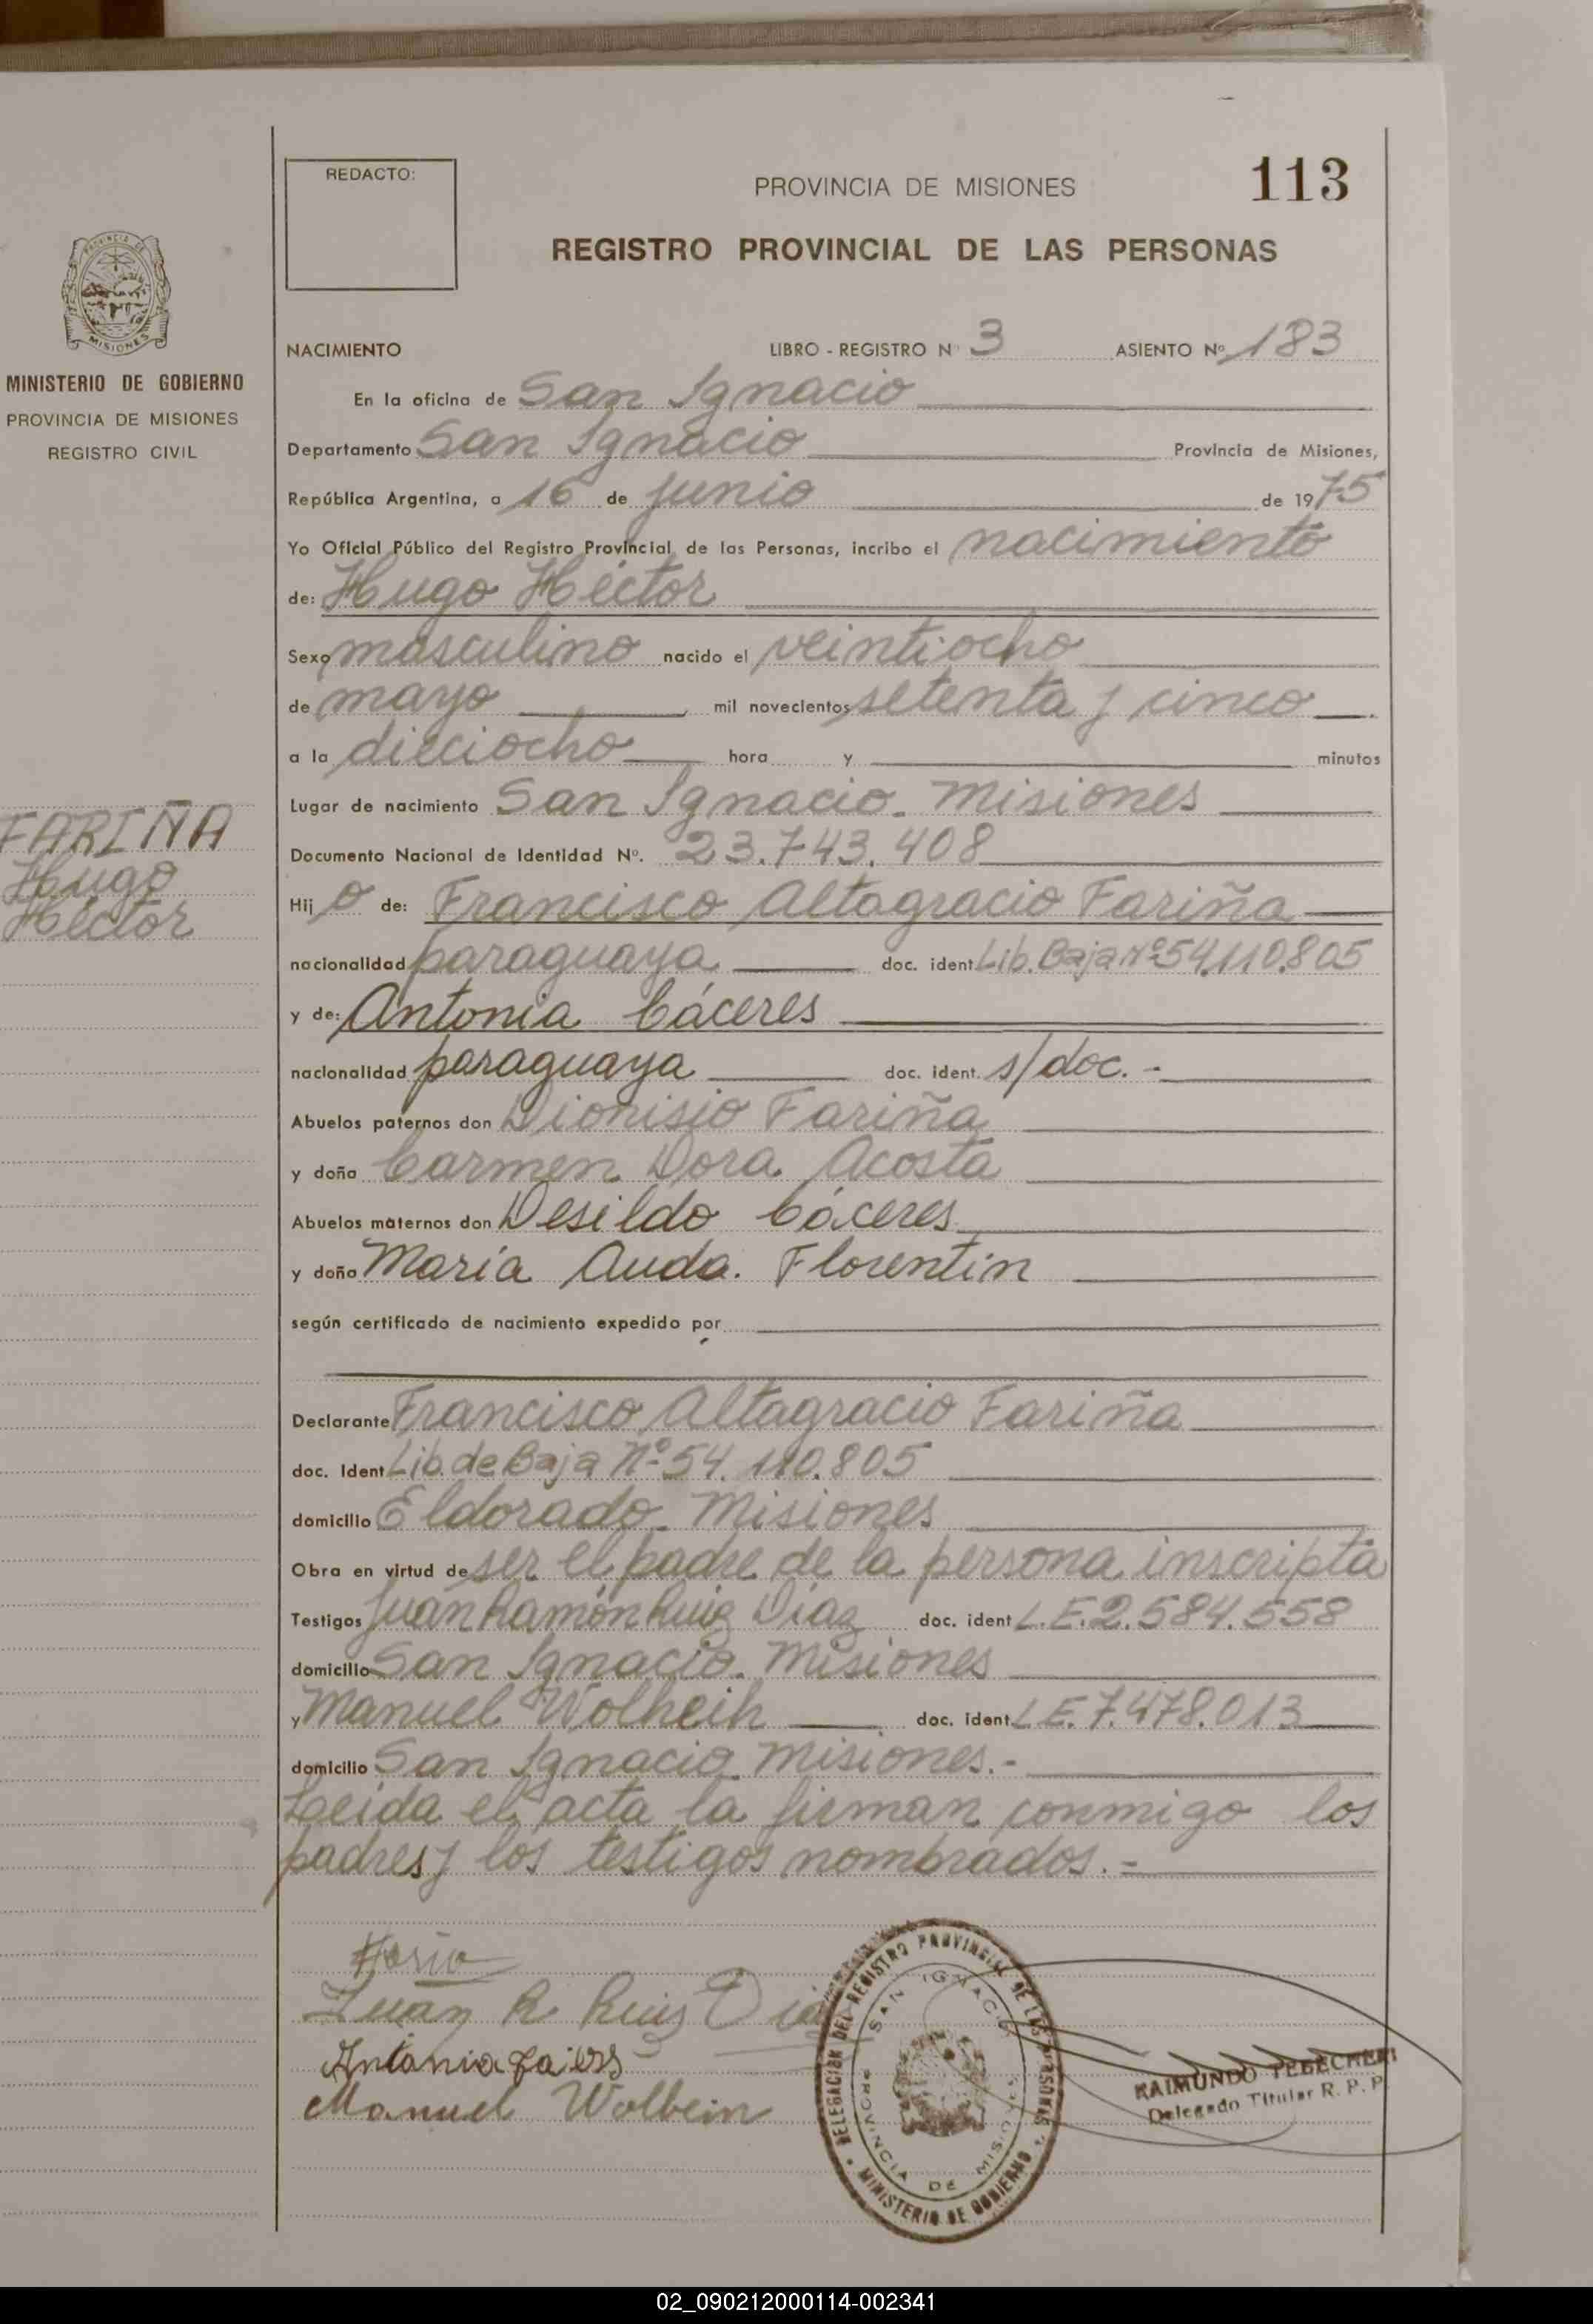 REDACTO:
PROVINCIA DE MISIONES
113
REGISTRO PROVINCIAL DE LAS PERSONAS
MISIONES
MINISTERIO DE GOBIERNO
PROVINCIA DE MISIONES
REGISTRO CIVIL
NACIMIENTO LIBRO - REGISTRO N° 3 ASIENTO Nº 183
En la oficina de San Ignacio
Departamento San Ignacio Provincia de Misiones,
República Argentina, a 16 de junio de 1975
Yo Oficial Público del Registro Provincial de las Personas, incribo el nacimiento
de: Hugo Héctor
Sexo masculino nacido el veintiocho
de mayo mil novecientos setenta y cinco
a la dieciocho hora y minutos
Lugar de nacimiento San Ignacio. Misiones
Documento Nacional de Identidad Nº. 23.743.408
FARIÑA
Hugo
Héctor
Hijo de: Francisco Altagracio Fariña
nacionalidad paraguaya doc. ident Lib. Baja nº 54.110.805
y de: Antonia Cáceres
nacionalidad paraguaya doc. ident. s/doc. -
Abuelos paternos don Dionisio Fariña
y doña Carmen Dora Acosta
Abuelos maternos don Desildo Cáceres
y doña María Auda. Florentin
según certificado de nacimiento expedido por
Declarante Francisco Altagracio Fariña
doc. Ident Lib. de Baja Nº 54.110.805
domicilio Eldorado. Misiones
Obra en virtud de ser el padre de la persona inscripta
Testigos Juan Ramón Ruiz Díaz doc. ident L.E. 2.584.558
domicilio San Ignacio. Misiones
y Manuel Wolhein doc. ident. L.E. 7.478.013
domicilio San Ignacio. Misiones.-
Leida el acta la firman conmigo los
padres y los testigos nombrados.=
Juan R Ruis Dia
Antonia
Manuel Wolbein
DELEGACION DEL REGISTRO PROVINCIAL DE LAS PERSONAS
MINISTERIO DE GOBIERNO
SAN IGNACIO
PROVINCIA DE MISIONES
RAIMUNDO
Delegado Titular R. P. P.
02_090212000114-002341